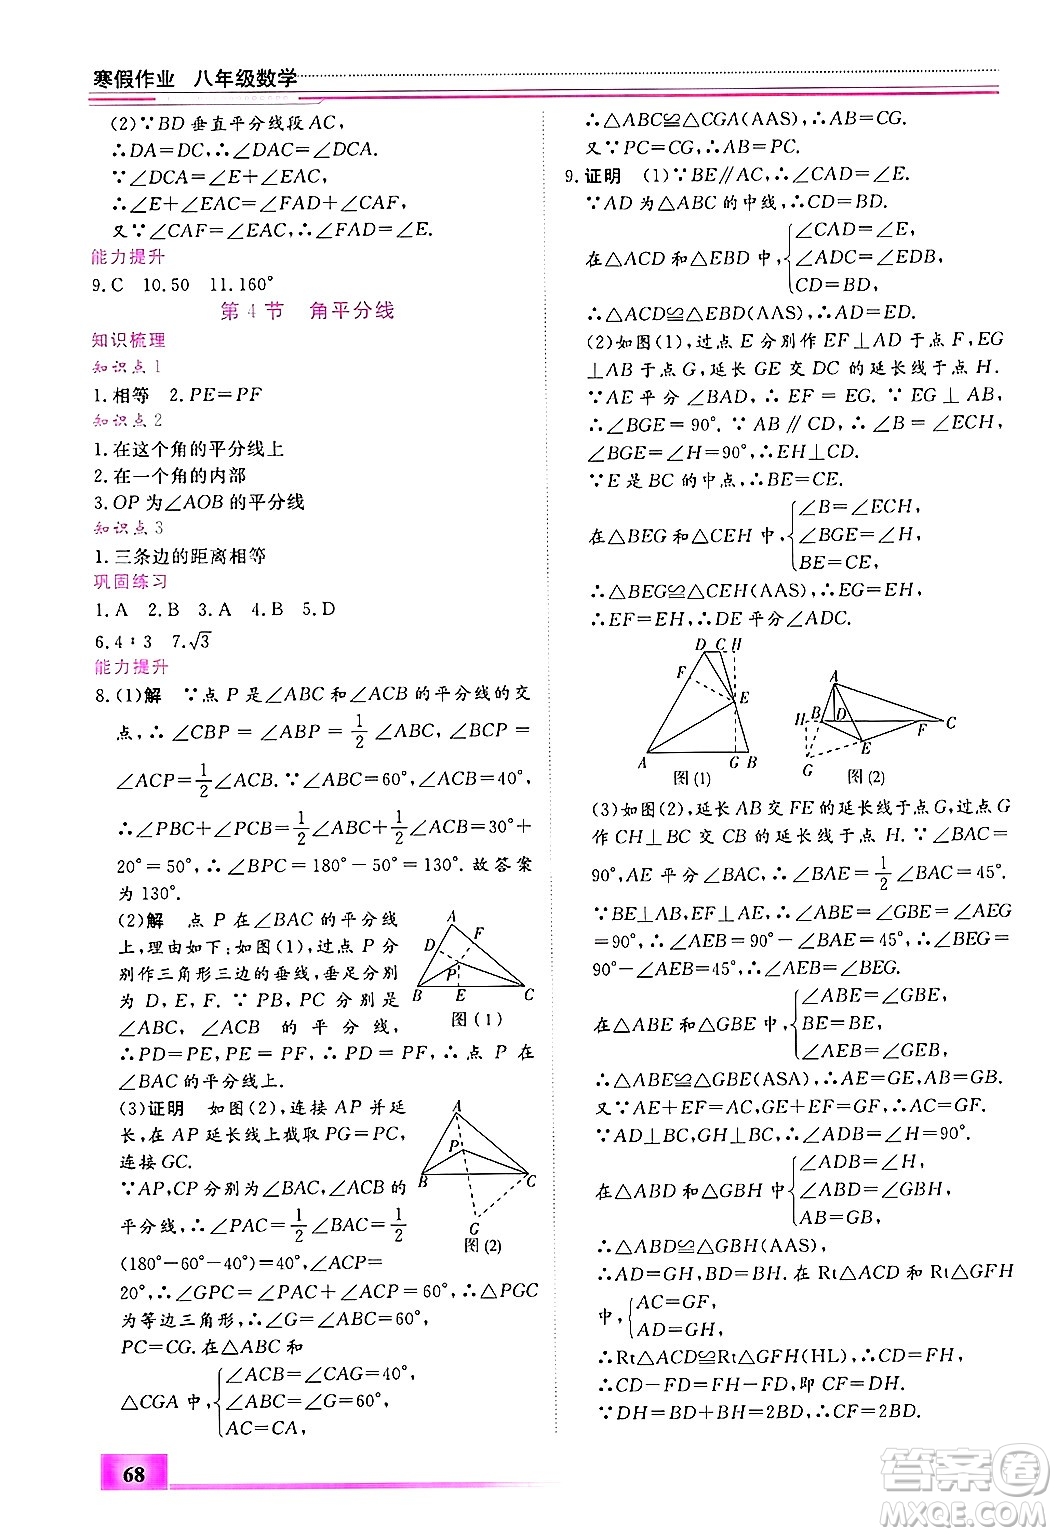 寒假作业 八年级数学
(2)∵BD垂直平分线段AC,
∴DA=DC,∴∠DAC=∠DCA.
∵∠DCA=∠E+∠EAC,
∴∠E+∠EAC=∠CAF+∠FAD.
又∵∠CAF=∠EAC,∴∠FAD=∠E.
能力提升
9.C 10.50 11.160°
第4节 角平分线
知识梳理
知识点1
1.相等 2.PE=PF
知识点2
1.在这个角的平分线上
2.在一个角的内部
3.OP为∠AOB的平分线
知识点3
1.三条边的距离相等
巩固练习
1.A 2.B 3.A 4.B 5.D
6.4∶3 7.√3
能力提升
8.(1)解 ∵点P是∠ABC和∠ACB的平分线的交
点,∴∠CBP=∠ABP=1/2∠ABC,∠BCP=
∠ACP=1/2∠ACB.∵∠ABC=60°,∠ACB=40°,
∴∠PBC+∠PCB=1/2∠ABC+1/2∠ACB=30°+
20°=50°,∴∠BPC=180°-50°=130°.故答案
为130°.
(2)解 点P在∠BAC的平分线
上,理由如下:如图(1),过点P分
别作三角形三边的垂线,垂足分别
为D,E,F.∵PB,PC分别是
∠ABC,∠ACB的平分线,
∴PD=PE,PE=PF,∴PD=PF,∴点P在
∠BAC的平分线上.
A
D
F
P
B
E
C
图(1)
(3)证明 如图(2),连接AP并延
长,在AP延长线上截取PG=PC,
连接GC.
∵AP,CP分别为∠BAC,∠ACB的
平分线,∴∠PAC=1/2∠BAC=1/2
(180°-60°-40°)=40°,∠ACP=
20°,∴∠GPC=∠PAC+∠ACP=60°,∴△PGC
为等边三角形,∴∠G=∠ABC=60°,
PC=CG.在△ABC和
△CGA中,{∠ACB=∠CAG=40°,
∠ABC=∠G=60°,
AC=CA,
A
P
B
C
G
图(2)
68
∴△ABC≌△CGA(AAS),∴AB=CG.
又∵PC=CG,∴AB=PC.
9.证明 (1)∵BE∥AC,∴∠CAD=∠E.
∵AD为△ABC的中线,∴CD=BD.
在△ADC和△EDB中,{∠CAD=∠E,
∠ADC=∠BDE,
CD=BD,
∴△ADC≌△EBD(AAS),∴AD=ED.
(2)如图(1),过点E分别作EF⊥AD于点F,EG
⊥AB于点G,延长GE交DC的延长线于点H.
∵AE平分∠BAD,∴EF=EG.∵EG⊥AB,
∴∠BGE=90°.∵AB∥CD,∴∠B=∠ECH,
∠BGE=∠H=90°,∴EH⊥CD.
∵E是BC的中点,∴BE=CE.
在△BEG和△CEH中,{∠B=∠ECH,
∠BGE=∠H,
BE=CE,
∴△BEG≌△CEH(AAS),∴EG=EH,
∴EF=EH,∴DE平分∠ADC.
D C H
F
E
A
G B
图(1)
A
H B D
F C
E
G
图(2)
(3)如图(2),延长AB交FE的延长线于点G,过点G
作CH⊥BC交CB的延长线于点H.∵∠BAC=
90°,AE平分∠BAC,∴∠BAE=1/2∠BAC=45°.
∵BE⊥AE,EF⊥AE,∴∠ABE=∠GBE=∠AEG
=90°,∴∠AEB=90°-∠BAE=45°,∴∠BEG=
90°-∠AEB=45°,∴∠AEB=∠BEG.
在△ABE和△GBE中,{∠ABE=∠GBE,
BE=BE,
∠AEB=∠GEB,
∴△ABE≌△GBE(ASA),∴AE=GE,AB=GB.
又∵AE+EF=GE+EF=GF,∴AC=GF.
∵AD⊥BC,GH⊥BC,∴∠ADB=∠H=90°.
在△ABD和△GBH中{∠ADB=∠H,
∠ABD=∠GBH,
AB=GB,
∴△ABD≌△GBH(AAS),
∴AD=GH,BD=BH.在Rt△ACD和Rt△GFH
中,{AC=GF,
AD=GH,
∴Rt△ACD≌Rt△GFH(HL),∴CD=FH,
∴CD-FD=FH-FD,即CF=DH.
∵DH=BD+BH=2BD,∴CF=2BD.
答案圈
MXQE.COM